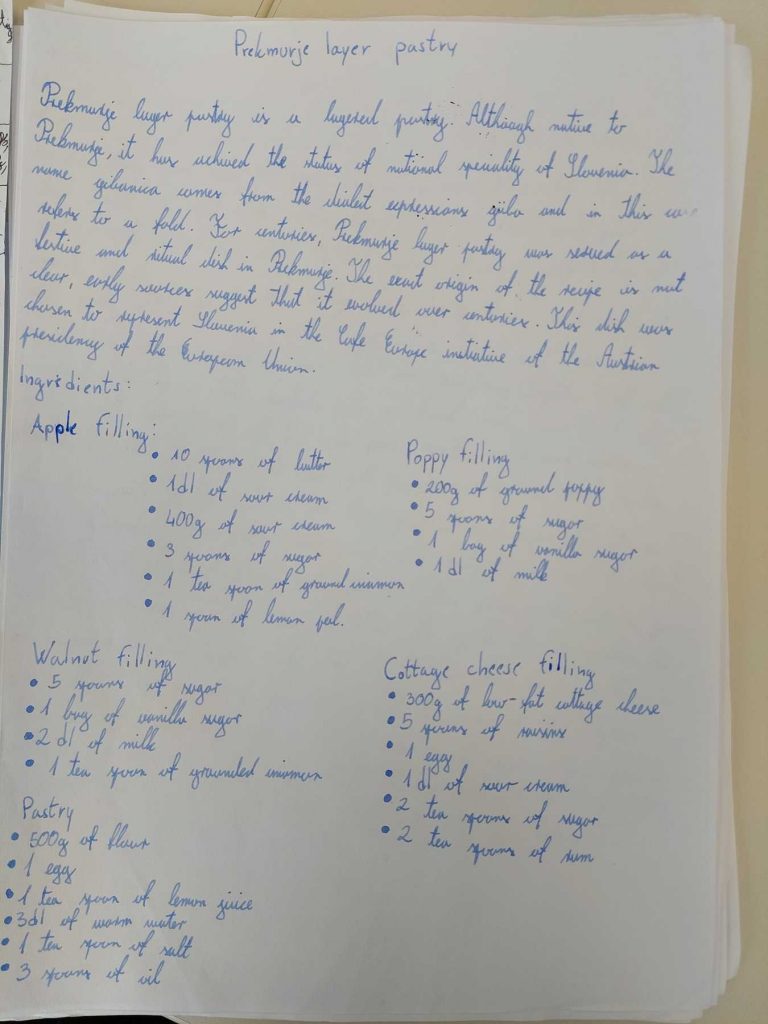 Prekmurje layer pastry
Prekmurje layer pastry is a layered pastry. Although native to
Prekmurje, it has achived the status of national speciality of Slovenia. The
name gibanica comes from the dialect expressions güba and in this case
refers to a fold. For centuries, Prekmurje layer pastry was served as a
festive and ritual dish in Prekmurje. The exact origin of the recipe is not
clear, early sources suggest that it evolved over centuries. This dish was
chosen to represent Slovenia in the Cafe Europe initiative of the Austrian
presidency of the European Union.
Ingredients:
Apple filling:
• 10 spoons of butter
• 1dl of sour cream
• 400g of sour cream
• 3 spoons of sugar
• 1 tea spoon of ground cinamon
• 1 spoon of lemon peel.
Poppy filling
• 200g of ground poppy
• 5 spoons of sugar
• 1 bag of vanilla sugar
• 1 dl of milk
Walnut filling
• 5 spoons of sugar
• 1 bag of vanilla sugar
• 2 dl of milk
• 1 tea spoon of grounded cinamon
Cottage cheese filling
• 300g of low-fat cottage cheese
• 5 spoons of raisins
• 1 egg
• 1 dl of sour cream
• 2 tea spoons of sugar
• 2 tea spoons of rum
Pastry
• 500g of flour
• 1 egg
• 1 tea spoon of lemon juice
• 3dl of warm water
• 1 tea spoon of salt
• 3 spoons of oil